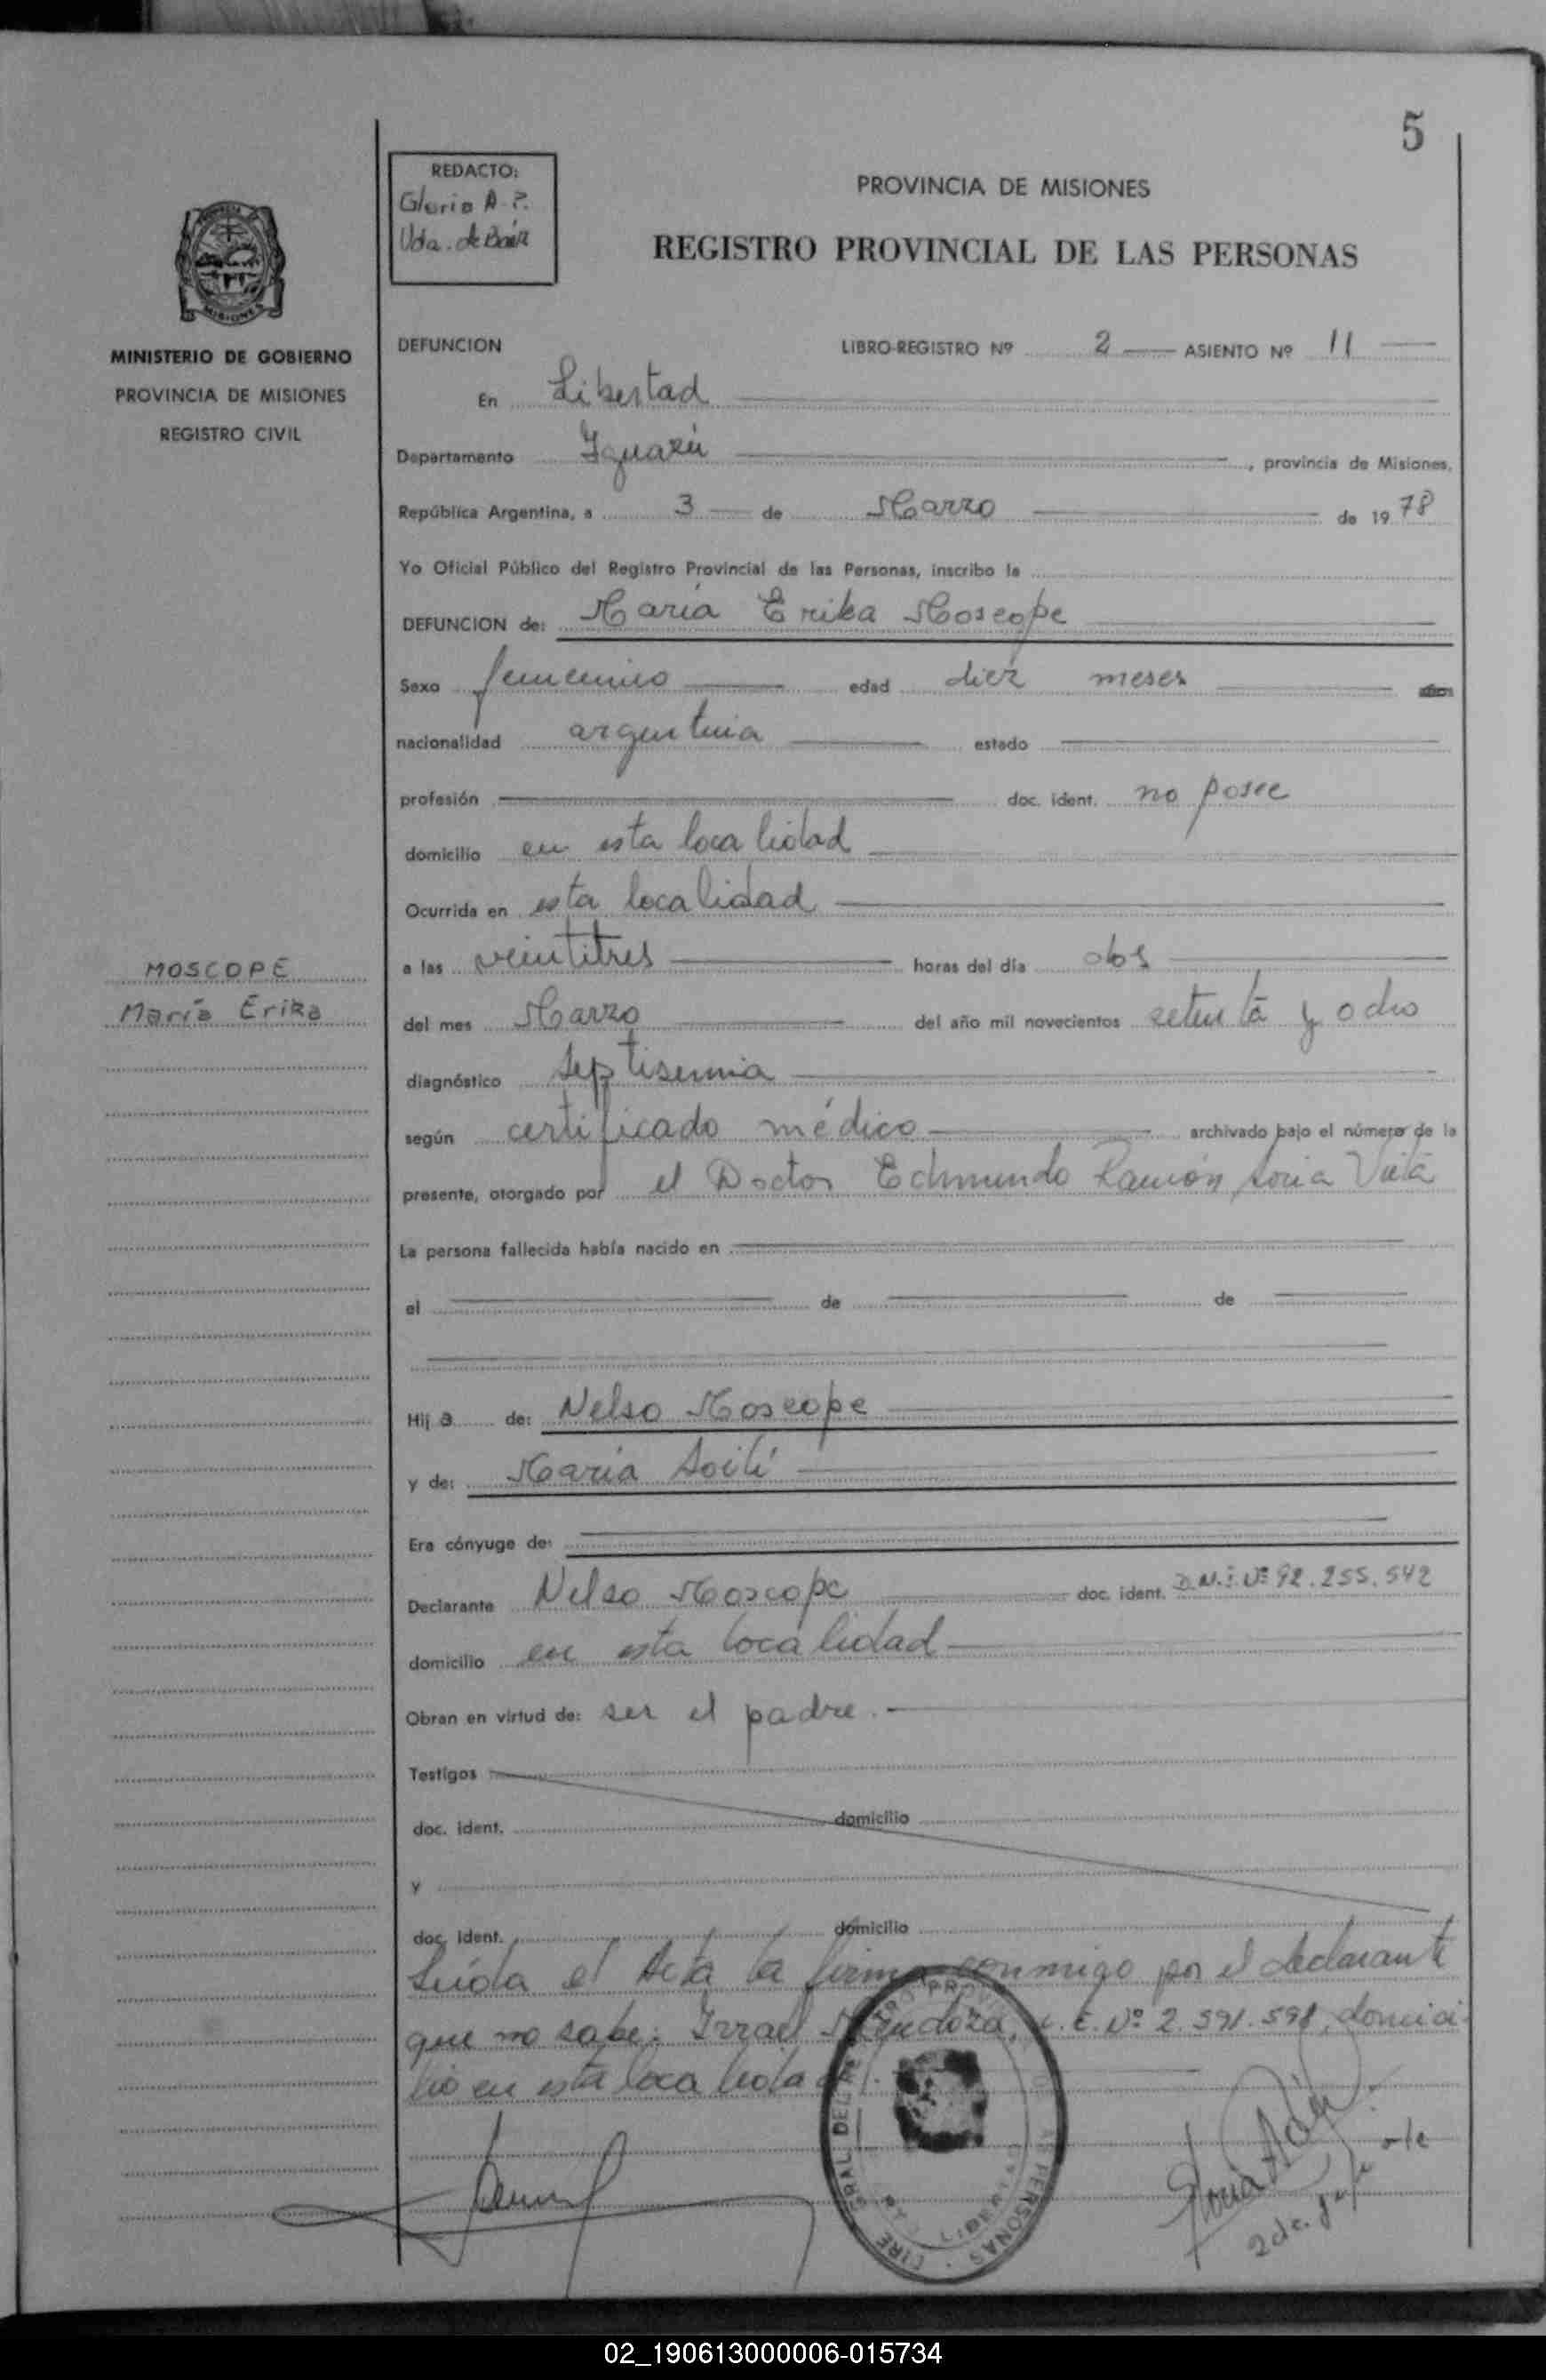 5
REDACTO:
Gloria A. P.
Vda. de Baéz
PROVINCIA DE MISIONES
REGISTRO PROVINCIAL DE LAS PERSONAS
MISIONES
MINISTERIO DE GOBIERNO
PROVINCIA DE MISIONES
REGISTRO CIVIL
DEFUNCION LIBRO-REGISTRO Nº 2 ASIENTO Nº 11
En Libertad
Departamento Iguazú, provincia de Misiones,
República Argentina, a 3 de Marzo de 1978
Yo Oficial Público del Registro Provincial de las Personas, inscribo la
DEFUNCION de: María Erika Moscope
Sexo femenino edad diez meses años
nacionalidad argentina estado
profesión doc. ident. no posee
domicilio en esta localidad
Ocurrida en esta localidad
MOSCOPE
María Erika
a las veintitres horas del día dos
del mes Marzo del año mil novecientos setenta y ocho
diagnóstico Septisemia
según certificado médico archivado bajo el número de la
presente, otorgado por el Doctor Edmundo Ramón Soria Vieta
La persona fallecida había nacido en
el de de
Hija de: Nelso Moscope
y de: María Soili
Era cónyuge de:
Declarante Nelso Moscope doc. ident. D.N.I. Nº 92.255.542
domicilio en esta localidad
Obran en virtud de: ser el padre.
Testigos
doc. ident. domicilio
y
doc. ident. domicilio
Leída el Acta la firma conmigo por el declarante
que no sabe: Irrael Mendoza, L.E. Nº 2.591.598, domici-
lio en esta localidad.
02_190613000006-015734